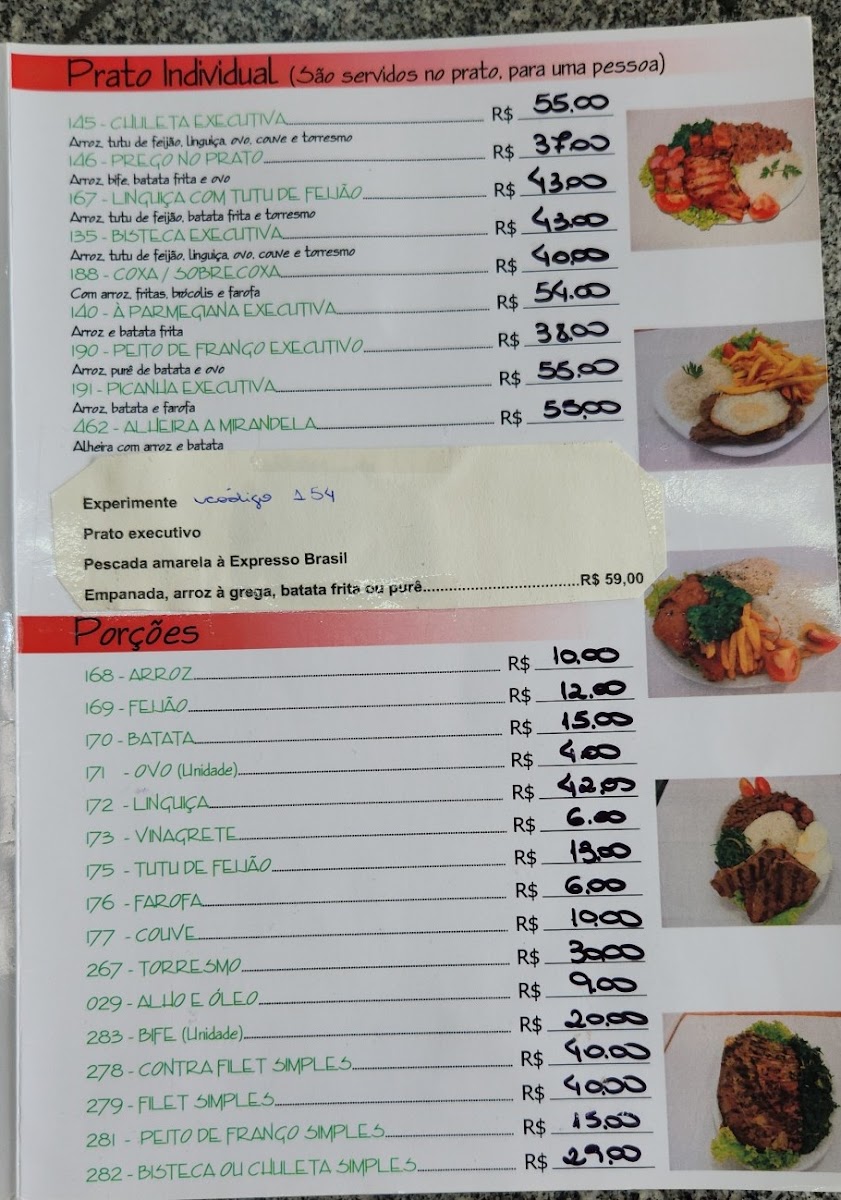 Prato Individual (São servidos no prato, para uma pessoa)
145 - CHULETA EXECUTIVA R$ 55.00
Arroz, tutu de feijão, linguiça, ovo, couve e torresmo
146 - PREGO NO PRATO R$ 37.00
Arroz, bife, batata frita e ovo
167 - LINGUIÇA COM TUTU DE FEIJÃO R$ 43.00
Arroz, tutu de feijão, batata frita e torresmo
135 - BISTECA EXECUTIVA R$ 43.00
Arroz, tutu de feijão, linguiça, ovo, couve e torresmo
188 - COXA / SOBRECOXA R$ 40.00
Com arroz, fritas, brócolis e farofa
140 - À PARMEGIANA EXECUTIVA R$ 54.00
Arroz e batata frita
190 - PEITO DE FRANGO EXECUTIVO R$ 38.00
Arroz, purê de batata e ovo
191 - PICANHA EXECUTIVA R$ 55.00
Arroz, batata e farofa
462 - ALHEIRA A MIRANDELA R$ 55,00
Alheira com arroz e batata
Experimente código 154
Prato executivo
Pescada amarela à Expresso Brasil
Empanada, arroz à grega, batata frita ou purê R$ 59,00
Porções
168 - ARROZ R$ 10.00
169 - FEIJÃO R$ 12.00
170 - BATATA R$ 15.00
171 - OVO (Unidade) R$ 4.00
172 - LINGUIÇA R$ 42.00
173 - VINAGRETE R$ 6.00
175 - TUTU DE FEIJÃO R$ 13.00
176 - FAROFA R$ 6.00
177 - COUVE R$ 10.00
267 - TORRESMO R$ 30.00
029 - ALHO E ÓLEO R$ 9.00
283 - BIFE (Unidade) R$ 20.00
278 - CONTRA FILET SIMPLES R$ 40.00
279 - FILET SIMPLES R$ 40.00
281 - PEITO DE FRANGO SIMPLES R$ 15.00
282 - BISTECA OU CHULETA SIMPLES R$ 29.00